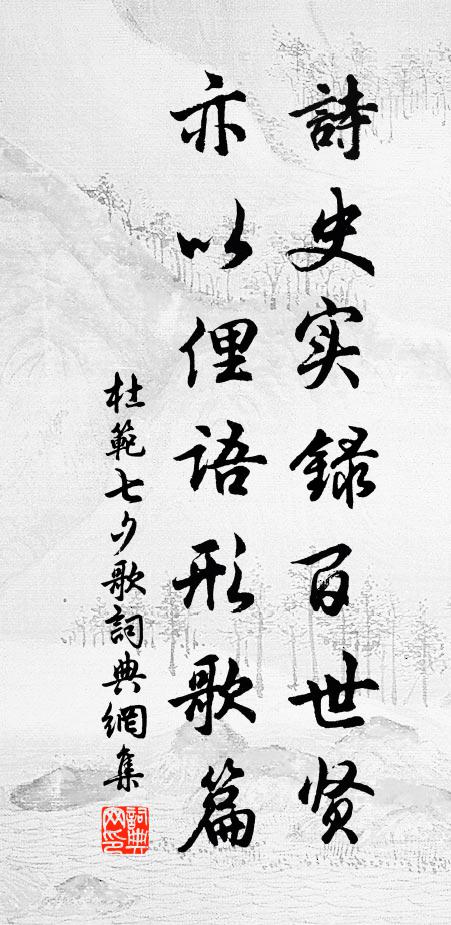 詩史实録百世贤
亦以俚语形歌篇
杜範七夕歌詞典網集
詞典网印